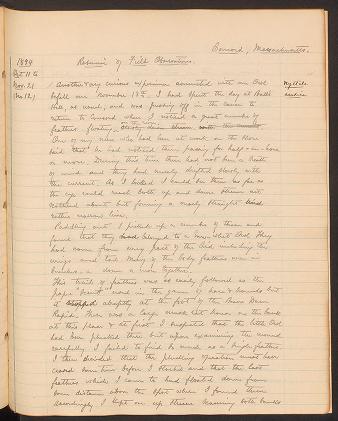 Concord, Massachusetts.
1899
Resumé of Field Observations.
Oct. 11 to
Nov. 21
(No. 12)
Another very curious experience connected with an Owl
befell me November 18th. I had spent the day at Ball's
Hill, as usual, and was pushing off in the canoe to
return to Concord when I noticed a great number of
feathers floating
on the river
One of my men who had been at work on the River
said that he had noticed them passing for half-an-hour
or more. During this time there had not been a breath
of wind and they had merely drifted slowly with
the current. As I looked I could see them as far as
the eye could reach both up and down stream not
scattered about but forming a nearly straight
rather narrow line.
Paddling out I picked up a number of them and
found that they belonged to a Owl. They
had come from every part of the bird including the
wings and tail. Many of the body feathers were in
bunches a dozen or more together.
This trail of feathers was as easily followed as the
paper "scent" used in the game of hare & hounds but
it stopped abruptly at the foot of the
Rapids. There was a large on the bank
at this place & at first I suspected that the Owl
had been plucked there but upon examining the ground
carefully I failed to find so much as a single feather.
I then decided that the plucking operation must have
ceased some time before I started and that the last
feathers which I came to had floated down from
some distance above the spot where I found them.
Accordingly I kept on up stream scanning both banks